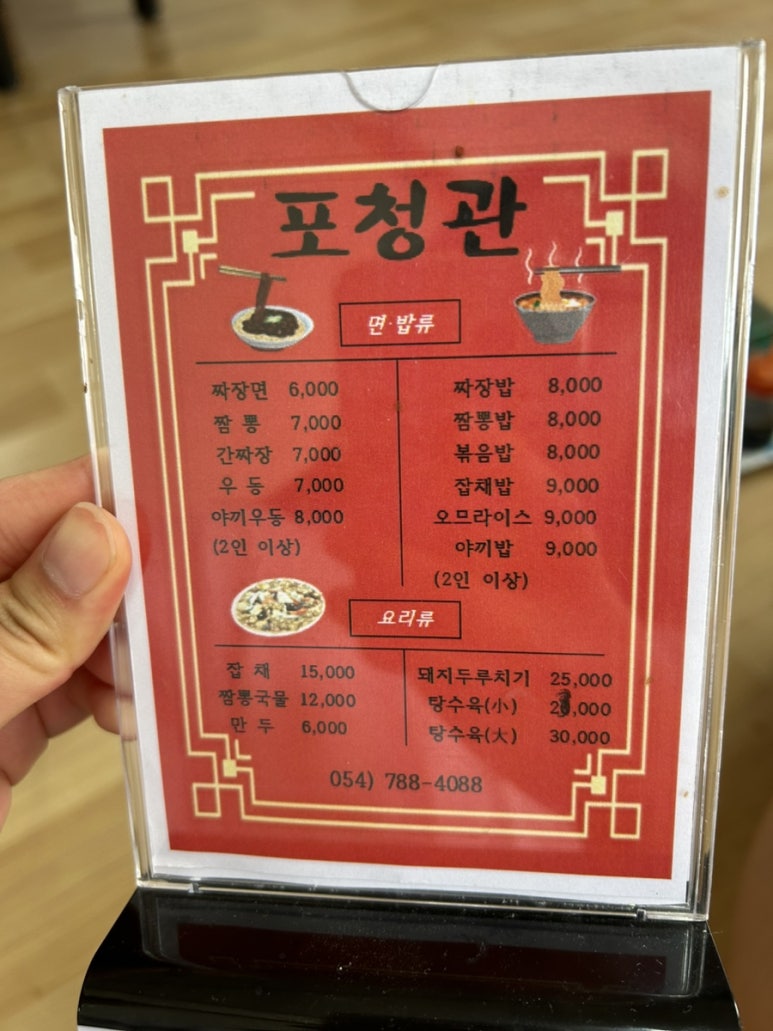 포청관
면·밥류
짜장면 6,000
짬 뽕 7,000
간짜장 7,000
우 동 7,000
야끼우동 8,000
(2인 이상)
짜장밥 8,000
짬뽕밥 8,000
볶음밥 8,000
잡채밥 9,000
오므라이스 9,000
야끼밥 9,000
(2인 이상)
요리류
잡 채 15,000
짬뽕국물 12,000
만 두 6,000
돼지두루치기 25,000
탕수육(小)
탕수육(大) 30,000
054) 788-4088